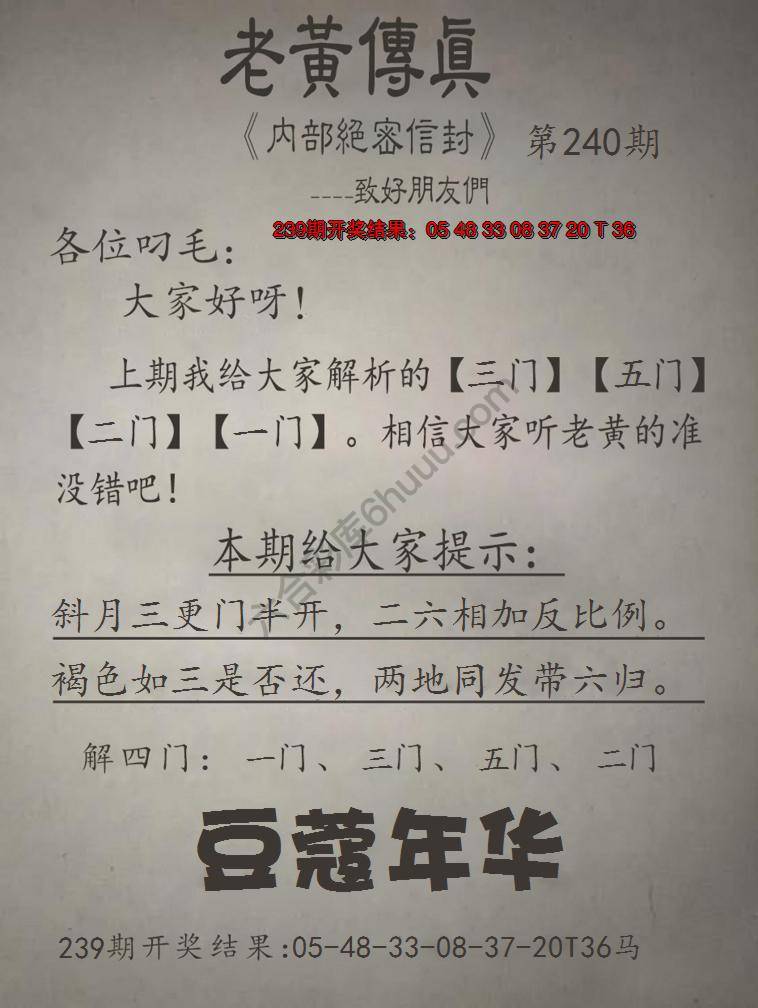 老黃傳眞
《内部絕密信封》 第240期
----致好朋友們
239期开奖结果：05 48 33 08 37 20 T 36
各位叼毛：
大家好呀！
上期我给大家解析的【三门】【五门】
【二门】【一门】。相信大家听老黄的准
没错吧！
本期给大家提示：
斜月三更门半开，二六相加反比例。
褐色如三是否还，两地同发带六归。
解四门： 一门、 三门、 五门、 二门
豆蔻年华
239期开奖结果:05-48-33-08-37-20T36马
六合彩库6huuu.com